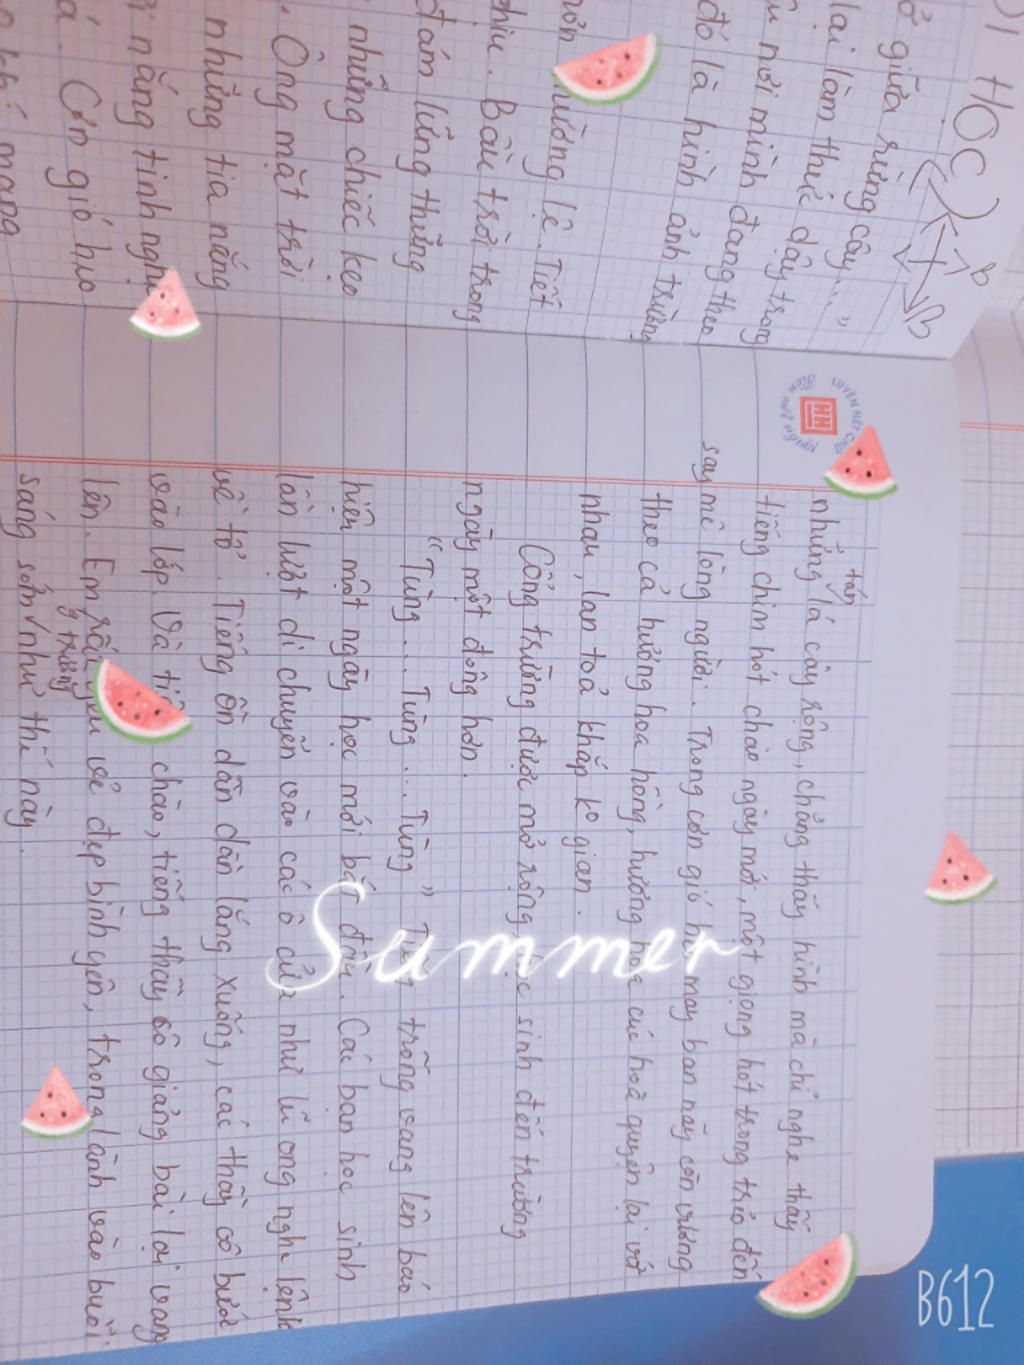 HỌC)
ở giữa rừng cây..."
lại làm thức dậy trong
nơi mình đang theo
đó là hình ảnh trường
lệ. Tiết
dịu. Bầu trời trong
đám lửng thửng
những chiếc kẹo
. Ông mặt trời
những tia nắng
nắng tinh nghị
á. Cơn gió hưo
mang
NÉT CHỮ
NẾT NGƯỜI
HH
những tán lá cây rộng, chẳng thấy hình mà chỉ nghe thấy
tiếng chim hót chào ngày mới, một giọng hót trong trẻo đến
say mê lòng người. Trong cơn gió may ban nãy còn vương
theo cả hưởng hoa hồng, hương hoa cúc hoà quyện lại với
nhau, lan toả khắp ko gian.
Cổng trường được mở rộng, học sinh đến trường
ngày một đông hơn.
"Tùng... Tùng... Tùng" Tiếng trống vang lên báo
hiệu một ngày học mới bắt đầu. Các bạn học sinh
lần lượt di chuyển vào các ô cửa như lũ ong nghe lệnh
về tổ. Tiếng ồn dần dần lắng xuống, các thầy cô bước
vào lớp. Và tiếng chào, tiếng thầy cô giảng bài lại vang
lên. Em rất yêu vẻ đẹp bình yên, trong lành vào buổi
sáng sớm ở trường như thế này.
Summer
B612